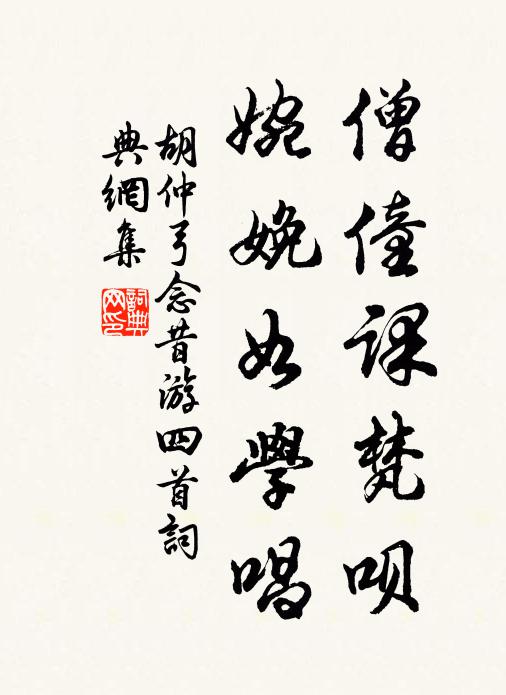 僧僮課梵唄
婉娩如學唱
胡仲弓念昔游四首詞
典網集
詞典網印